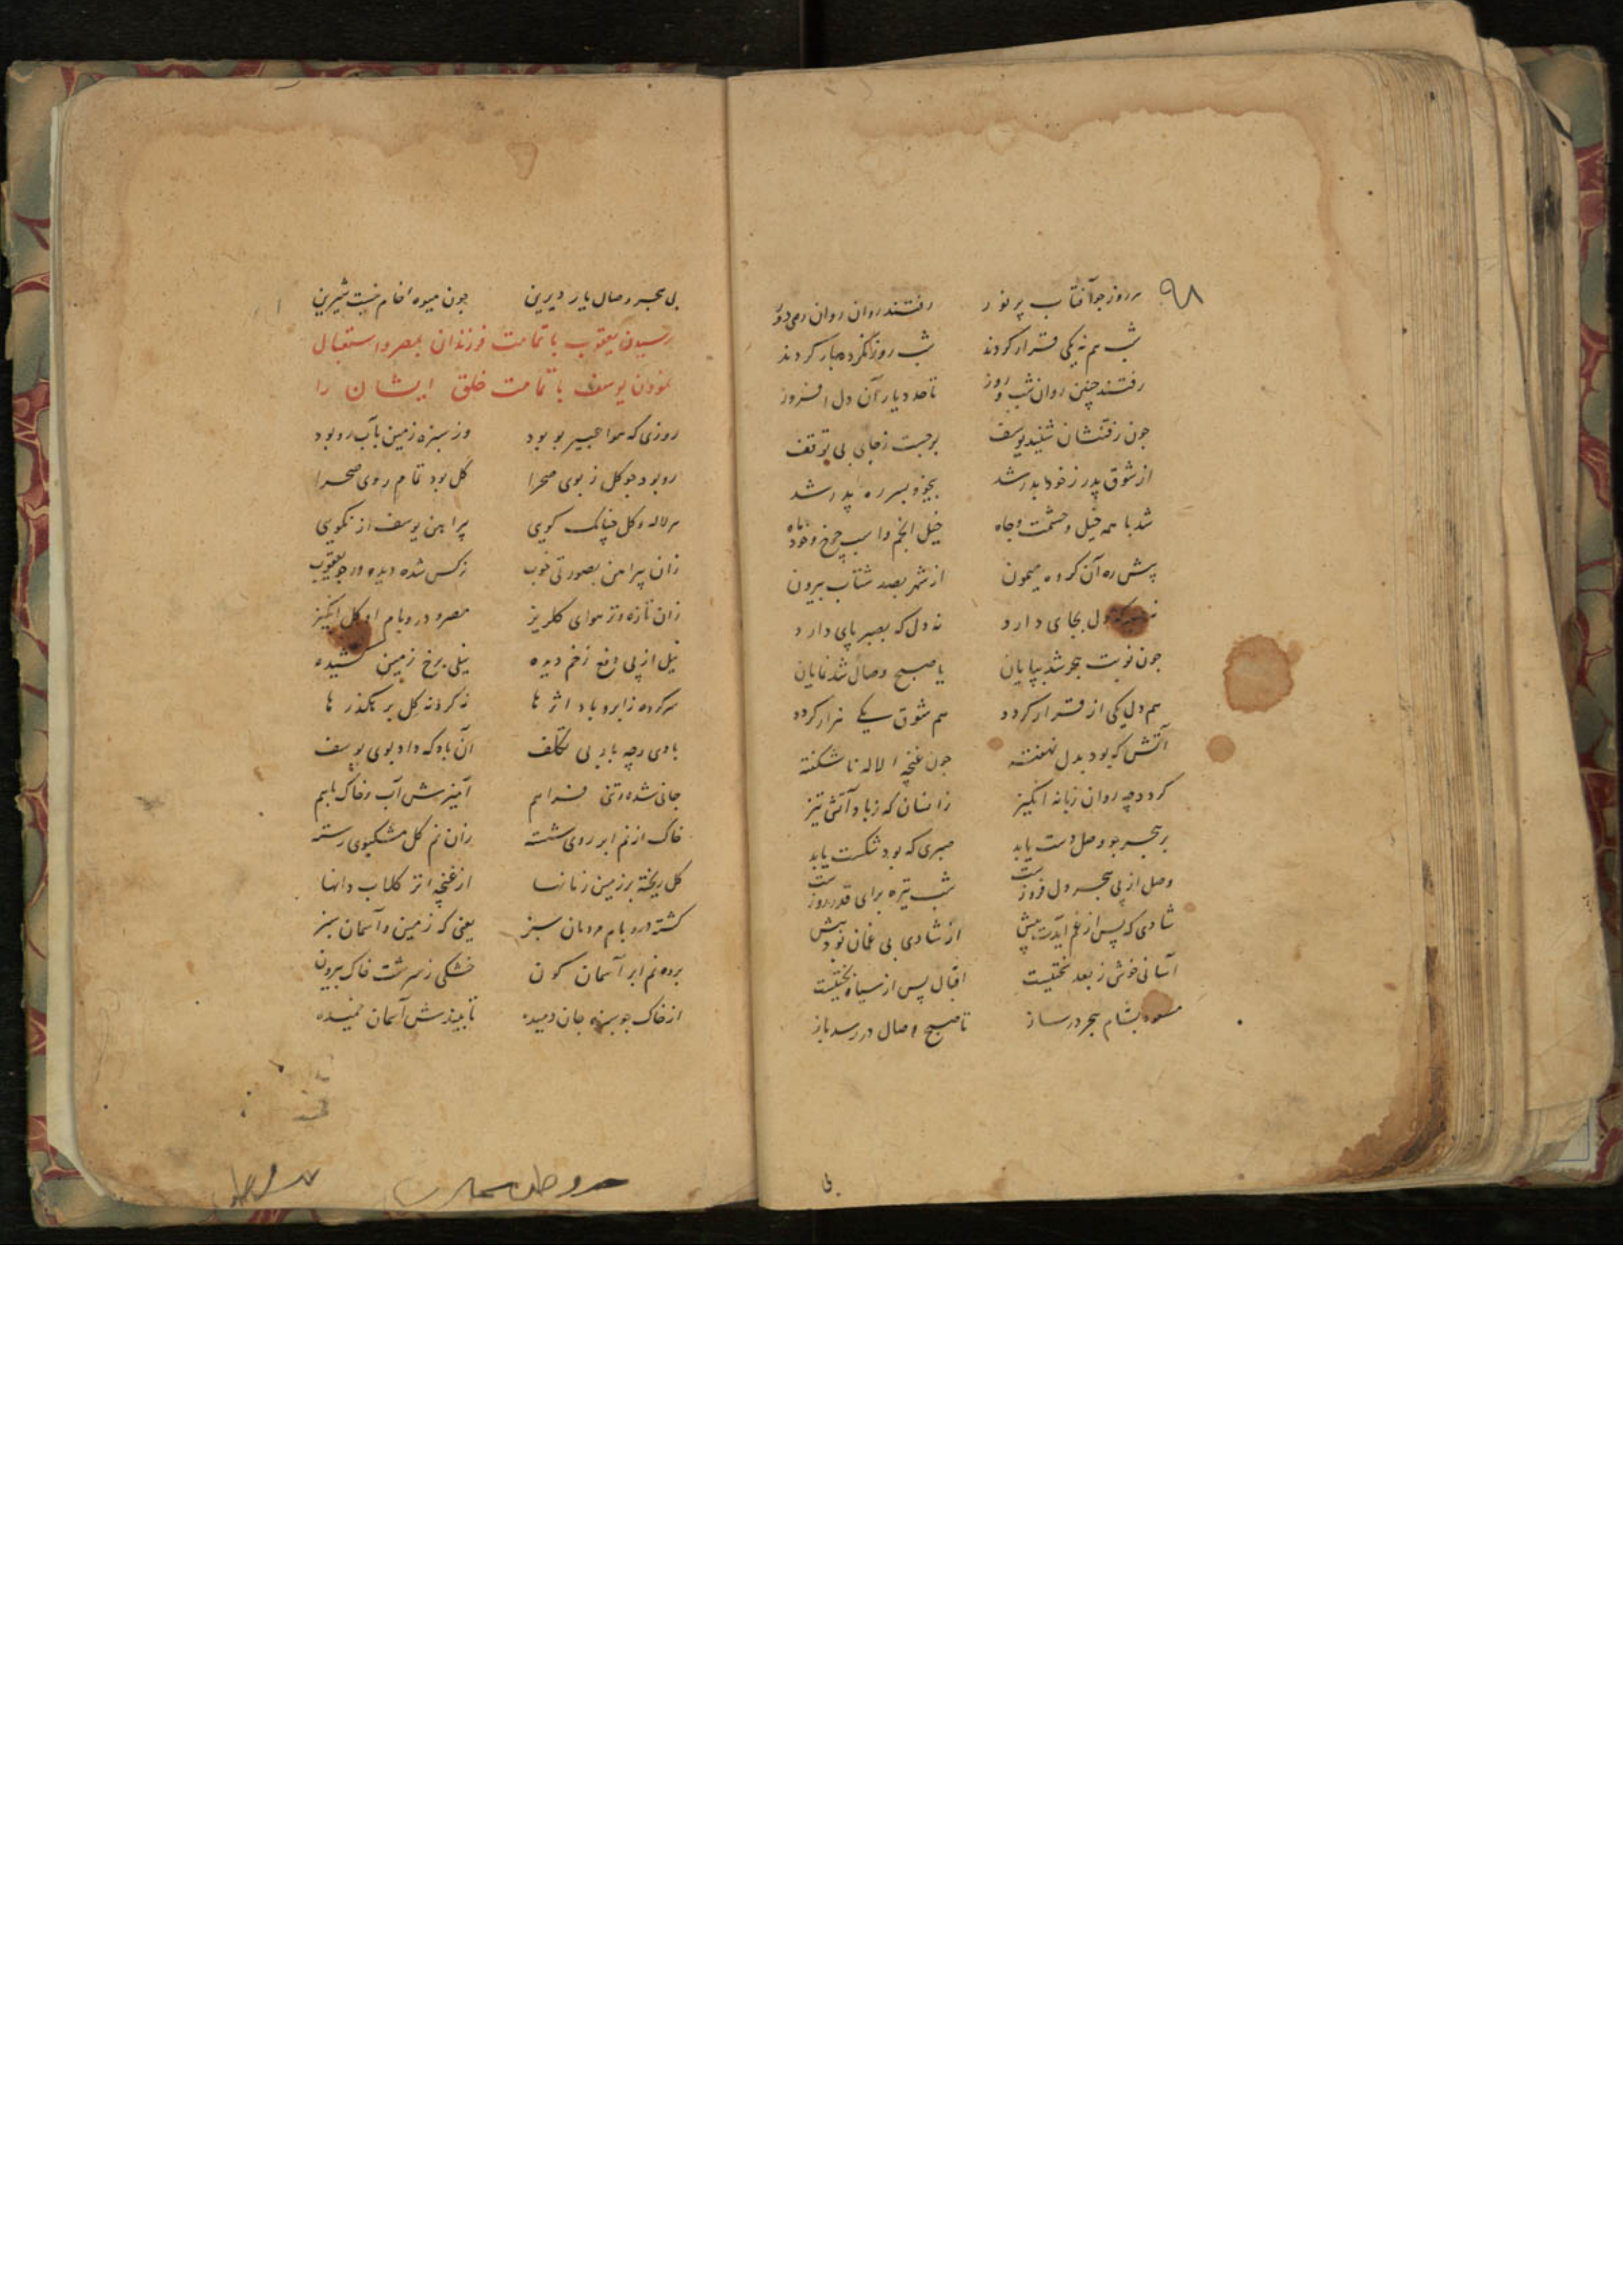 ۹۸
هر روز چو آفتاب پر نور رفتند روان روان رهی دور
شب هم نه یکی قرار کردند شب روز نکرده بار کردند
رفتند چنین روان شب و روز تا حد دیار آن دل افروز
چون رفتنشان شنید یوسف برجست ز جای بی توقف
از شوق پدر ز خود بدر شد بیخود بسر ره پدر شد
شد با همه خیل و حشمت و جاه خیل انجم و اسب چرخ و خود ماه
پیش ره آن گروه میمون از شهر بصد شتاب بیرون
دل بجای دارد نه دل که بصبر پای دارد
چون نوبت هجر شد بپایان یا صبح وصال شد نمایان
هم دل یکی از قرار گردد هم شوق یکی هزار گردد
آتش که بود بدل نهفته چون غنچه لاله ناشکفته
گردد چه روان زبانه انگیز زانسان که ز باد آتش تیز
بر هجر چو وصل دست یابد صبری که بود شکست یابد
وصل از پی هجر دل فروزست شب تیره برای قدر روزست
شادی که پس از غم آیدت پیش از شادی بی غمان بود بیش
آسانی خوش ز بعد سختیست اقبال پس از سیاه بختیست
بشام هجر در ساز تا صبح وصال در رسد باز
بی
بی هجر وصال یار دیرین چون میوه خام نیست شیرین
رسیدن یعقوب با تمامت فرزندان بمصر و استقبال
نمودن یوسف با تمامت خلق ایشان را
روزی که هوا عبیر بو بود وز سبزه زمین بآب رو بود
رو بود چو گل ز بوی صحرا گل بود تمام روی صحرا
هر لاله و گل چنانک گویی پیراهن یوسف از نکویی
زان پیرهن بصورتی خوب نرگس شده دیده ور چو یعقوب
زان تازه و تر هوای گلریز مصر و در و بام او گل انگیز
نیل از پی دفع زخم دیده نیلی برخ زمین کشیده
هر کرده ز ابر و باد اثرها نه گرد نه گل بر رهگذرها
بادی و چه باد بی تکلف آن باد که داد بوی یوسف
جانی شده و تنی فراهم آمیزش آب و خاک با هم
خاک از نم ابر روی شسته زان نم گل مشکبوی رسته
گل ریخته بر زمین زنانها از غنچه تر گلاب دانها
گشته در و بام و دمان سبز یعنی که زمین و آسمان سبز
برده نم ابر آسمان گون خشکی ز سرشت خاک بیرون
از خاک چو سبزه جان دمیده تا بیندش آسمان خمیده